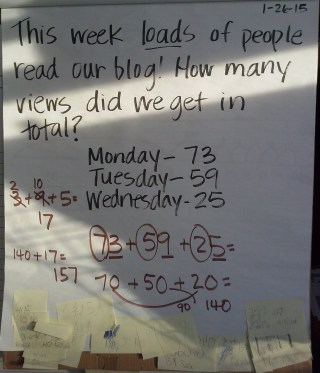 1-26-15
This week loads of people
read our blog! How many
views did we get in
total?
Monday - 73
Tuesday - 59
Wednesday - 25
2 10
3+9+5=
17
73 + 59 + 25 =
140+17=
157
70 + 50 + 20 =
90 140